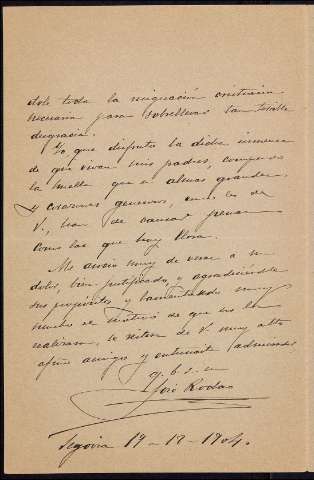 dole toda la resignación cristiana
necesaria para sobrellevar tan terrible
desgracia.
Yo que disfruto la dicha inmensa
de que vivan mis padres, comprendo
la huella que a almas grandes
y corazones generosos, como los de
V., han de causar penas
como las que hoy llora.
Me asocio muy de veras a su
dolor, bien justificado, y agradeciendo
sus propósitos y lamentando muy
mucho el motivo de que no los
realizara, se reitera de V. muy alto
afmo amigo y entusiasta admirador
q. b. s. m
José Rodao
Segovia 19-12-1904.